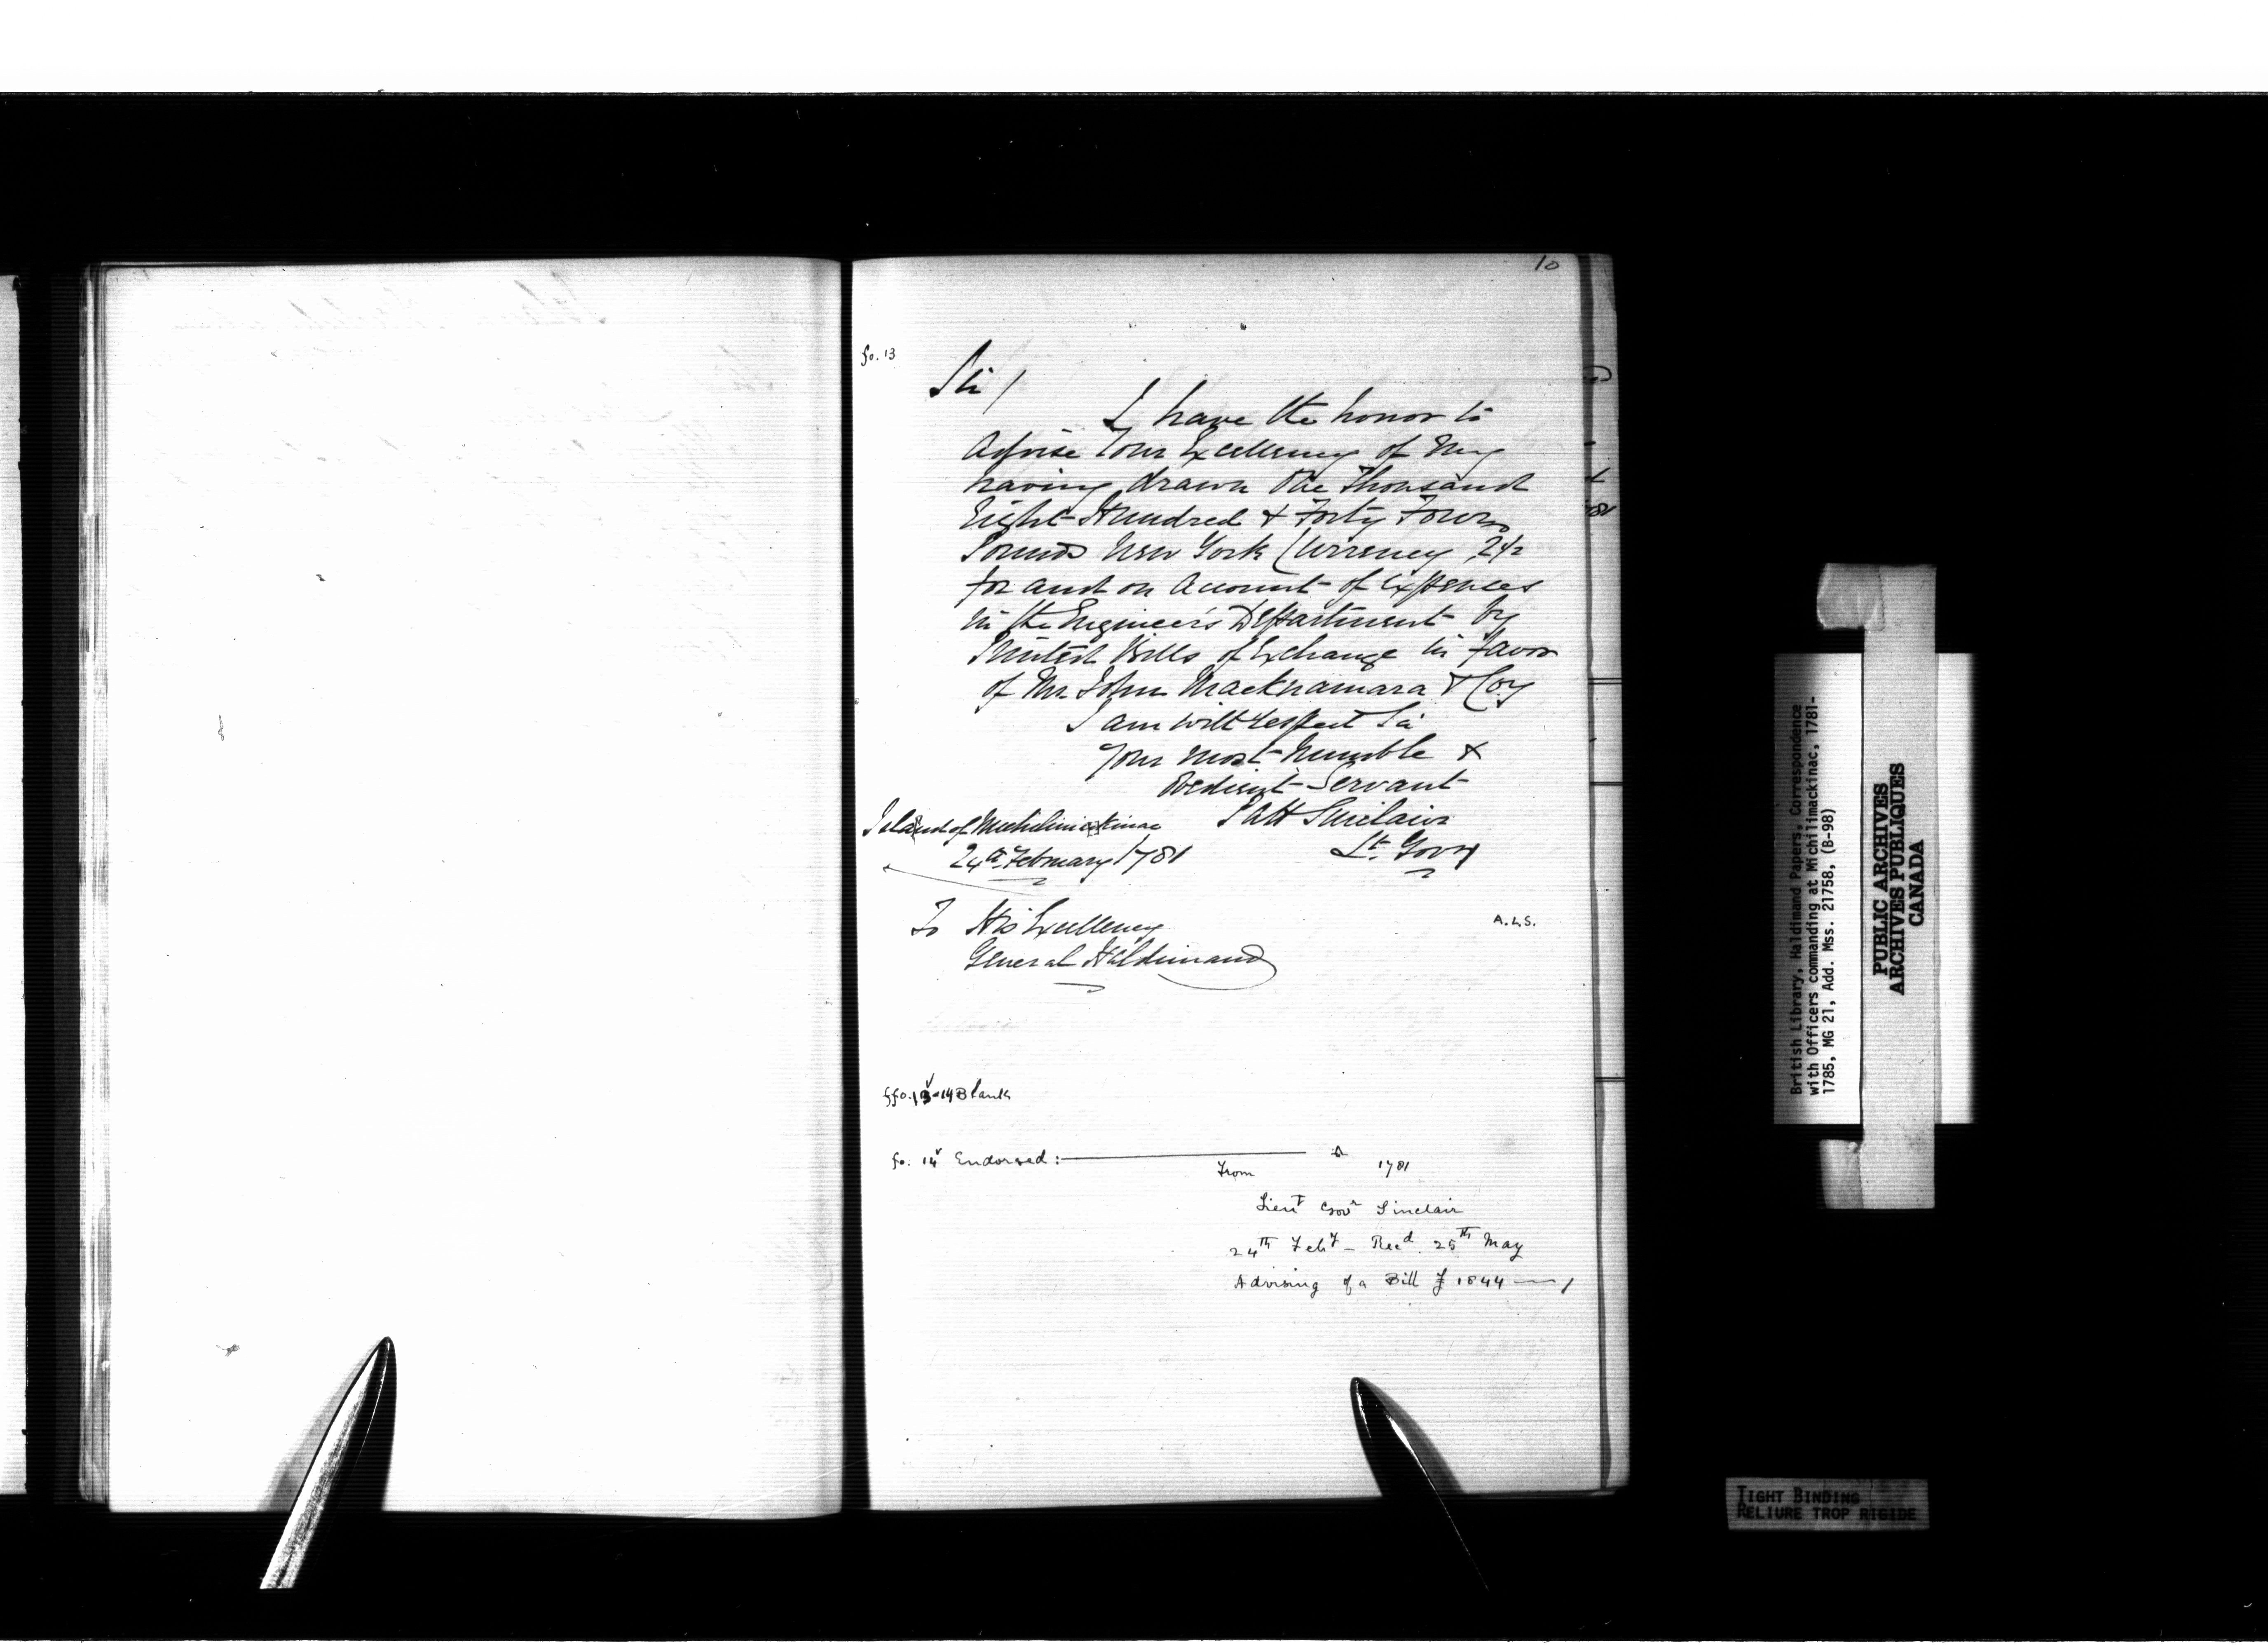 10
fo. 13
Sir /
I have the honor to
Advise Your Excellency of My
having drawn One Thousand
Eight Hundred & Forty Four
Pounds New York Currency, 2/2
for and on account of Expences
in the Engineer's Department by
Printed Bills of Exchange in favor
of Mr. John Macknamara & Coy
I am with respect Sir
Your most humble &
Obedient Servant
Patt Sinclair
Lt. Govr
Island of Michilimackinac
24th February 1781
To His Excellency
General Haldimand
A.L.S.
ffo. 13v-14 Blank
fo. 14v Endorsed:
From 1781
Lieut Govr Sinclair
24th Feby - Recd. 25th May
Advising of a Bill £ 1844
British Library, Haldimand Papers, Correspondence
with Officers commanding at Michilimackinac, 1781-
1785, MG 21, Add. Mss. 21758, (B-98)
PUBLIC ARCHIVES
ARCHIVES PUBLIQUES
CANADA
TIGHT BINDING
RELIURE TROP RIGIDE